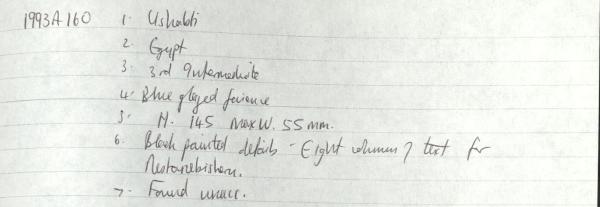 1993A160 1. Ushabti
2. Egypt
3. 3rd Intermediate
4. Blue glazed faience
5. H. 145 Max W. 55 mm.
6. Black painted details - Eight columns of text for
Nestanebishern.
7. Found unacc.